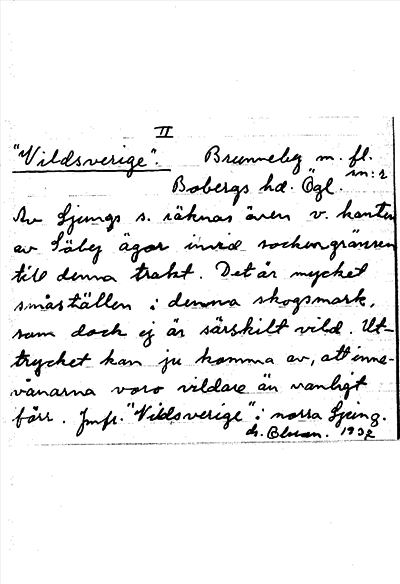 II
"Vildsverige". Brunneby m. fl. sn:r
Bobergs hd. Ögl.
Av Ljungs s. räknas även v. kanten
av Säby ägor invid sockengränsen
till denna trakt. Det är mycket
småställen i denna skogsmark,
som dock ej är särskilt vild. Ut-
trycket kan ju komma av, att inne-
vånarna voro vildare än vanligt
förr. Jmfr. "Vildsverige" i norra Ljung.
1932